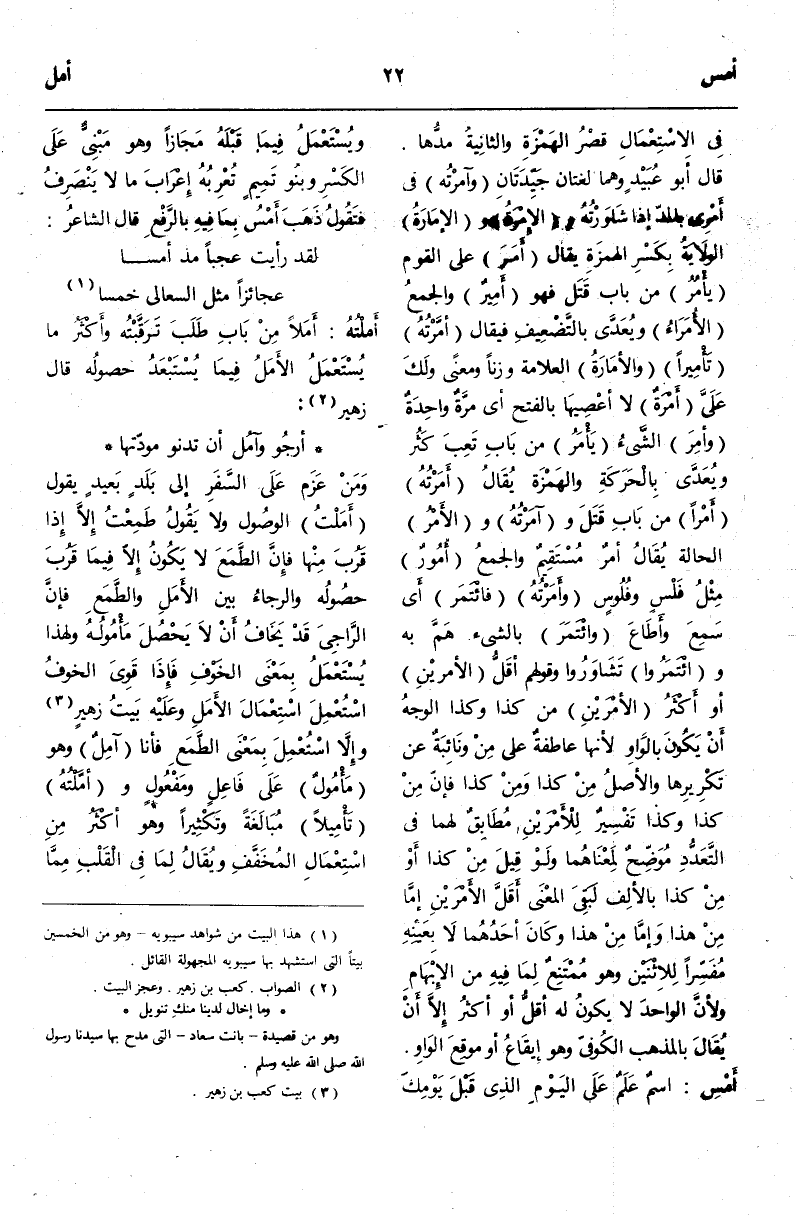 أمس
٢٢
أمل
فِى الاسْتِعْمَالِ قصْرُ الهَمْزَةِ والثانِيَةُ مدُّها .
قال أَبو عُبَيْدٍ وهما لغتان جَيِّدَتَانِ ( وآمرْتُه ) فى
أَمْرِى بالمدّ إذا شاورْتُهُ و ( الإِمْرَةُ ) و ( الإمَارَةُ )
الولَايَةُ بِكَسْرِ الهمزَةِ يقال ( أَمَرَ ) على القوم
( يأْمُرُ ) من باب قَتَل فهو ( أَمِيرٌ ) والجمعُ
( الأُمَرَاءُ ) ويُعَدَّى بالتَّضْعِيفِ فيقال ( أمَّرْتُهُ )
( تَأْمِيراً ) ( والأمَارَةُ ) العلامة وزناً ومعنًى ولَكَ
عَلَىَّ ( أَمْرَةٌ ) لا أعْصِيهَا بالفتح أى مرَّةٌ واحِدَةٌ
( وأَمِرَ ) الشَّىءُ ( يَأْمَرُ ) من بَابِ تَعِبَ كَثُرَ
ويُعَدَّى بِالْحَرَكَةِ والهَمْزَة يُقَالُ ( أَمَرْتُهُ )
( أَمْراً ) من بَابِ قَتَلَ و ( آمَرْتُهُ ) و ( الأَمْرُ )
الحالة يُقَالُ أمرٌ مُسْتَقِيمٌ والجمعُ ( أُمُورٌ )
مِثْلُ فَلْسٍ وفُلُوسٍ ( وأَمَرْتُهُ ) ( فائْتَمَر ) أى
سَمِعَ وأَطَاعَ ( وائْتَمَرَ ) بالشىء هَمَّ به
و ( ائْتَمَرُوا ) تَشَاوَرُوا وقولهم أقلُّ ( الأمريْنِ )
أو أَكْثَرُ ( الأمْرَيْنِ ) من كذا وكذا الوجهُ
أَنْ يَكُونَ بالوَاوِ لأنها عاطفةٌ على مِنْ ونَائِبَةٌ عن
تكْرِيرِها والأصلُ مِنْ كذا وَمِنْ كذا فإنَ مِنْ
كذا وكذا تَفْسِيرٌ لِلْأَمْرَيْنِ مُطَابِقٌ لهما فى
التَّعَدُّدِ مُوَضِّحٌ لِمَعْنَاهُما ولَوْ قِيلَ مِنْ كذا أَوْ
مِنْ كذا بالألِف لَبَقِىَ المَعْنَى أَقلَّ الأَمْرَيْنِ إمَّا
مِنْ هذا وَإِمَّا مِنْ هذا وكَانَ أحَدُهُما لَا بِعَيْنِهِ
مُفَسِّراً لِلاثْنَيْنِ وهو مُمْتَنِعٌ لِمَا فِيهِ من الإِبْهَامِ
ولأنَّ الواحدَ لا يكونُ له أقلُّ أو أكثرُ إلاَّ أَنْ
يُقَالَ بالمذهب الكُوفىّ وهو إيقَاعُ أو موقِعَ الوَاوِ .
أَمْسِ : اسمٌ عَلَمٌ عَلَى اليَوْمِ الذِى قَبْلَ يَوْمِكَ
ويُسْتَعْمَلُ فِيمَا قَبْلَهُ مَجَازاً وهو مَبْنِىٌّ عَلَى
الكَسْرِ وبنُو تَمِيمٍ تُعْرِبُهُ إعْرَابَ مَا لا يَنْصَرِفُ
فتَقُولُ ذَهَبَ أَمْسُ بِمَا فِيهِ بالرَّفْعِ قال الشاعرُ :
لقد رأيت عجباً مذ أمسـا
عجائزاً مثل السعالى خمسا(١)
أَمَلْتُهُ : أَمَلاً مِنْ بَابِ طَلَبَ تَرَقَّبْتُه وأَكْثَرُ ما
يُسْتَعْمَلُ الأَمَلُ فِيمَا يُسْتَبْعَدُ حصولُه قال
زهير(٢) :
* أرجُو وآمُل أن تدنو مودّتها *
وَمَنْ عَزَم عَلَى السَّفَرِ إلى بَلَدٍ بَعِيدٍ يقول
( أَمَلْتُ ) الوصُول ولا يَقُولُ طَمِعْتُ إلاَّ إِذَا
قَرُبَ مِنْها فإِنَّ الطَّمَعَ لا يَكُونُ إِلاَّ فِيمَا قَرُبَ
حصُولُه والرجاءُ بين الأَمَلِ والطَّمَعِ فإنَّ
الرَّاجِىَ قَدْ يَخَافُ أَنْ لاَ يَحْصُلَ مَأْمُولُهُ ولهذا
يُسْتَعْمَلُ بِمَعْنَى الخَوْفِ فَإِذَا قَوِىَ الخوفُ
اسْتُعْمِلَ اسْتِعْمَالَ الأَمَلِ وعَلَيْه بَيتُ زهيرٍ(٣)
وإِلَّا اسْتُعْمِلَ بِمَعْنَى الطَّمَعِ فأَنا ( آمِلٌ ) وهو
( مَأْمُولٌ ) عَلَى فَاعِلٍ ومَفْعُولٍ و ( أمَّلْتُهُ )
( تَأْمِيلاً ) مُبَالَغَةً وتَكْثِيراً وهُو أكثَرُ مِنِ
اسْتِعْمَالِ المُخَفَّفِ ويُقَالُ لِمَا فِى الْقَلْبِ مِمَّا
( ١ ) هذا البيت من شواهد سيبويه – وهو من الخمسين
بيتاً التى استشهد بها سيبويه المجهولة القائل .
( ٢ ) الصواب . كعب بن زهير . وعجز البيت .
* وما إخال لدينا منك تنويل *
وهو من قصيدة – بانت سعاد – التى مدح بها سيدنا رسول
الله صلى الله عليه وسلم .
( ٣ ) بيت كعب بن زهير .